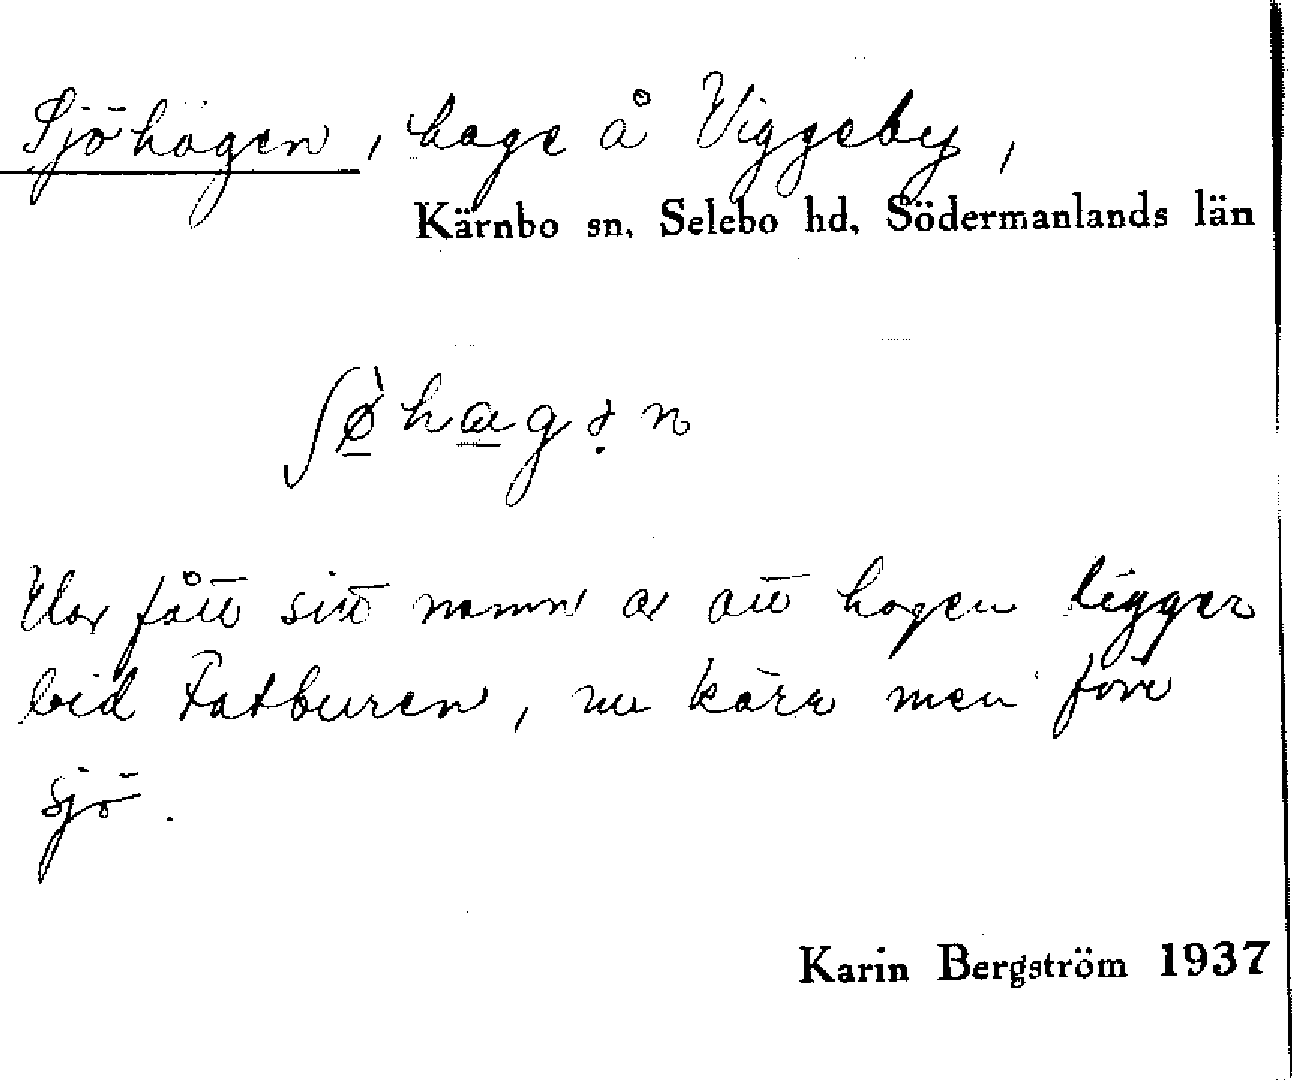 Sjöhagen, hage å Viggeby,
Kärnbo sn, Selebo hd, Södermanlands län
ʃø̀hagən
Har fått sitt namn av att hagen ligger
vid Fatburen, nu kärr men förr
sjö.
Karin Bergström 1937